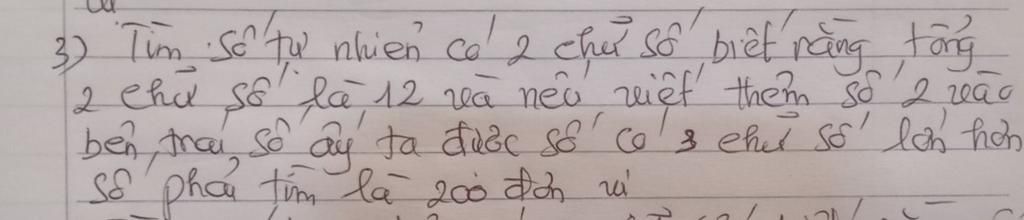 3) Tìm số tự nhiên có 2 chữ số biết rằng tổng
2 chữ số là 12 và nếu viết thêm số 2 vào
bên trái số ấy ta được số có 3 chữ số lớn hơn
số phải tìm là 200 đơn vị